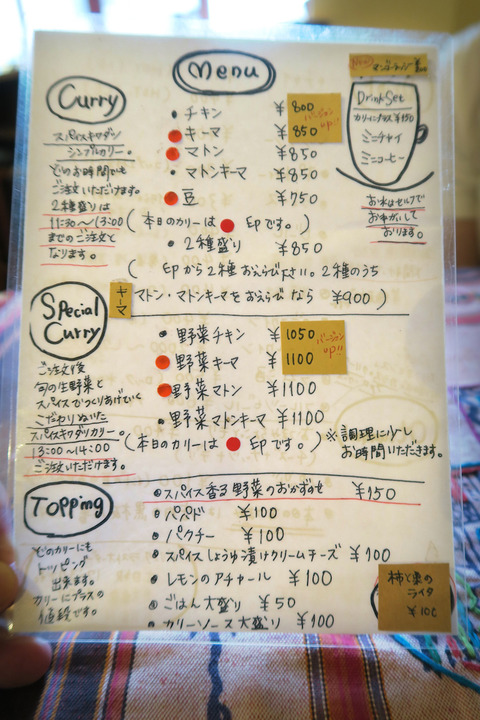 Menu
New
マンゴーラッシー ¥200
Curry
スパイスキワダツ
シンプルカリー。
どのお時間でも
ご注文いただけます。
2種盛りは
11:30～13:00
までのご注文と
なります。
• チキン ¥ 800
バージョンup!!
キーマ ¥ 850
マトン ¥850
• マトンキーマ ¥850
豆 ¥750
(本日のカリーは ● 印です。)
• 2種盛り ¥850
( 印から2種おえらび下さい。2種のうち
キーマ マトン・マトンキーマをおえらびなら ¥900 )
DrinkSet
カリーにプラス¥150
ミニチャイ
ミニコーヒー
お水はセルフで
お願いして
おります。
Special
Curry
ご注文後
旬の生野菜と
スパイスでつくりあげていく
こだわりぬいた
スパイスキワダツカリー。
13:00～14:00
ご注文いただけます。
• 野菜チキン ¥ 1050
バージョンup!!
野菜キーマ ¥ 1100
野菜マトン ¥1100
• 野菜マトンキーマ ¥1100
(本日のカリーは ● 印です。)
※調理に少し
お時間いただきます。
Topping
どのカリーにも
トッピング
出来ます。
カリーにプラスの
値段です。
• スパイス香る野菜のおかずのせ ¥150
• パパド ¥100
• パクチー ¥100
• スパイスしょうゆ漬けクリームチーズ ¥100
• レモンのアチャール ¥100
• ごはん大盛り ¥50
• カリーソース大盛り ¥100
柿と栗の
ライタ
¥100